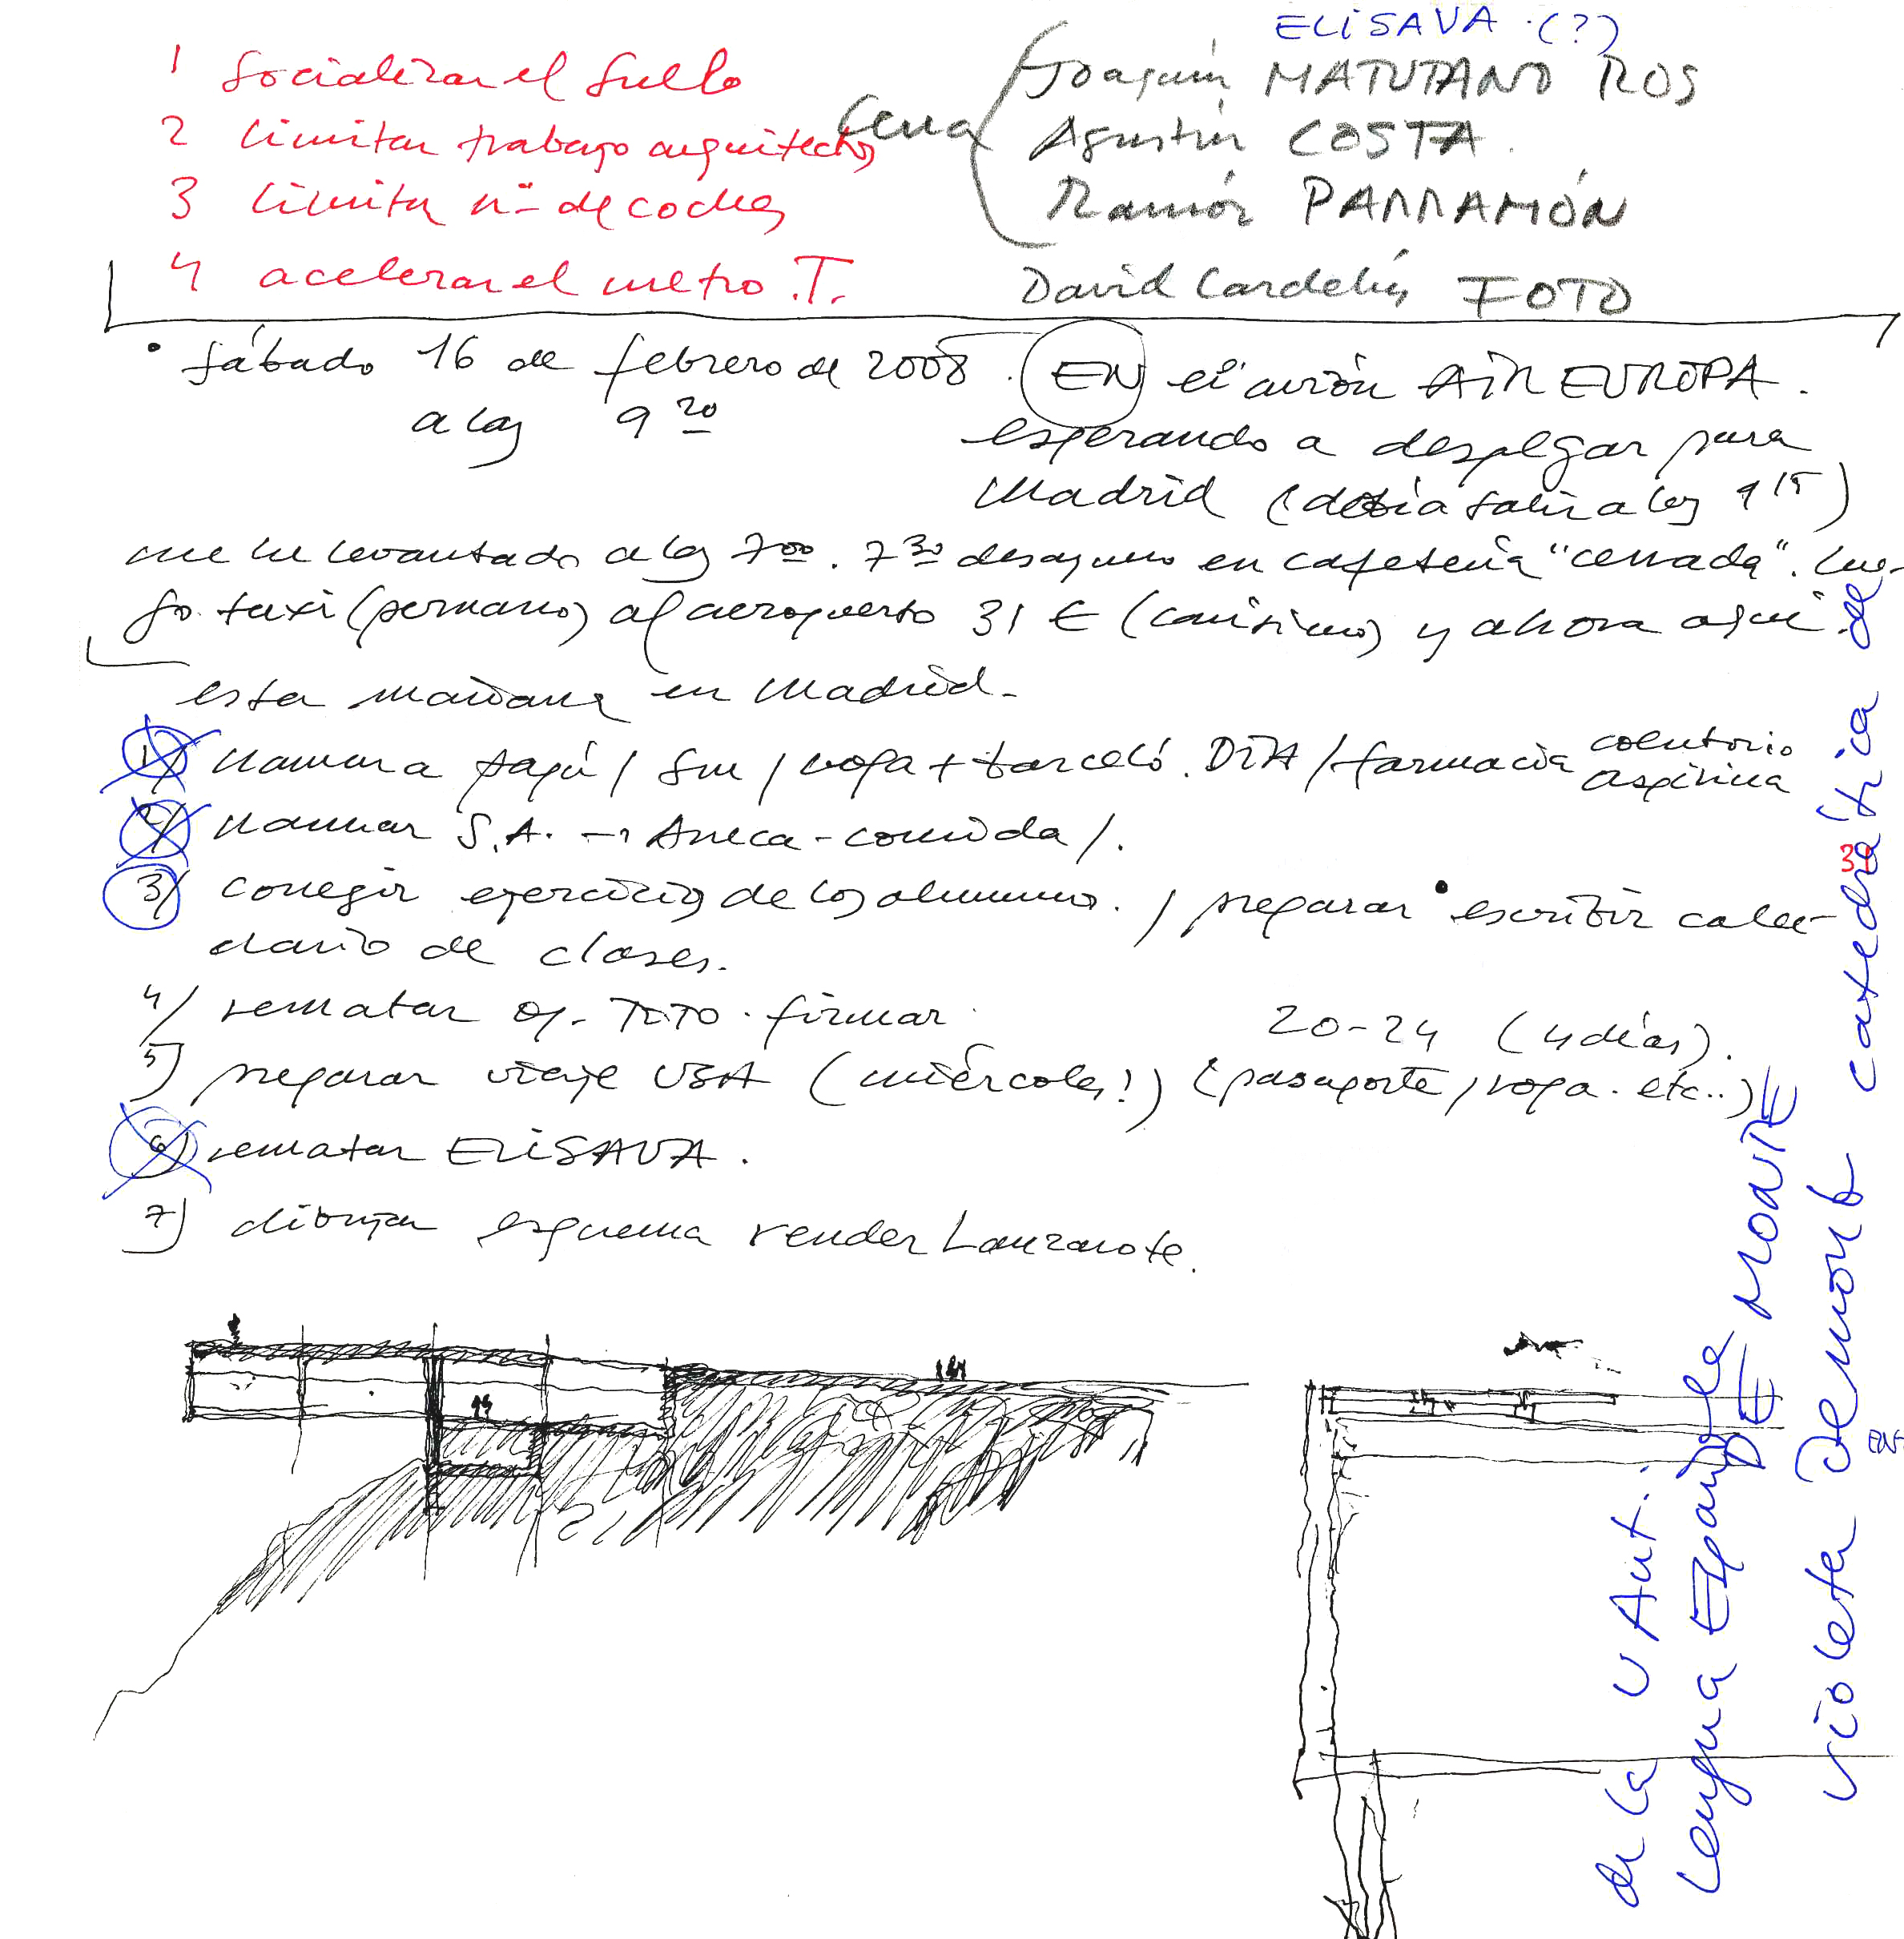 ELISAVA (?)
1 Socializar el suelo
2 limitar trabajo arquitectos
3 limitar nº de coches
4 acelerar el metro T.
Cena
Joaquín MATUTANO ROS
Agustín COSTA.
Ramón PARRAMÓN
David Cardelús FOTO
• sábado 16 de febrero de 2008. EN el avión AIR EUROPA.
a las 9 20
esperando a despegar para
Madrid (debía salir a las 9 15)
me he levantado a las 7 00. 7 30 desayuno en cafetería "cerrada". Lue-
go taxi (peruano) al aeropuerto 31 € (carísimo) y ahora aquí.
esta mañana en Madrid-
1/ llamar a papá / / ropa + Barceló. DIA / farmacia colutorio
aspirina
2/ llamar S.A. → Aneca - comida /.
3/ corregir ejercicios de los alumnos. / preparar • escribir calen-
dario de clases.
4/ rematar TOTO. firmar.
20-24 (4 días).
5) preparar viaje USA (miércoles!) (pasaporte, ropa. etc..)
6) rematar ELISAVA.
7) dibujar esquema render Lanzarote.
Violeta Demonte catedrática de
DE MONTE
Lengua Española
de la U Aut.